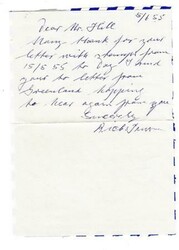 5/6 55
Dear Mr. Hill
Many thank for your
letter with stamps from
15/5 55 to Day I send
your to letter from
Greenland hopping
to hear again from you
Sincerely